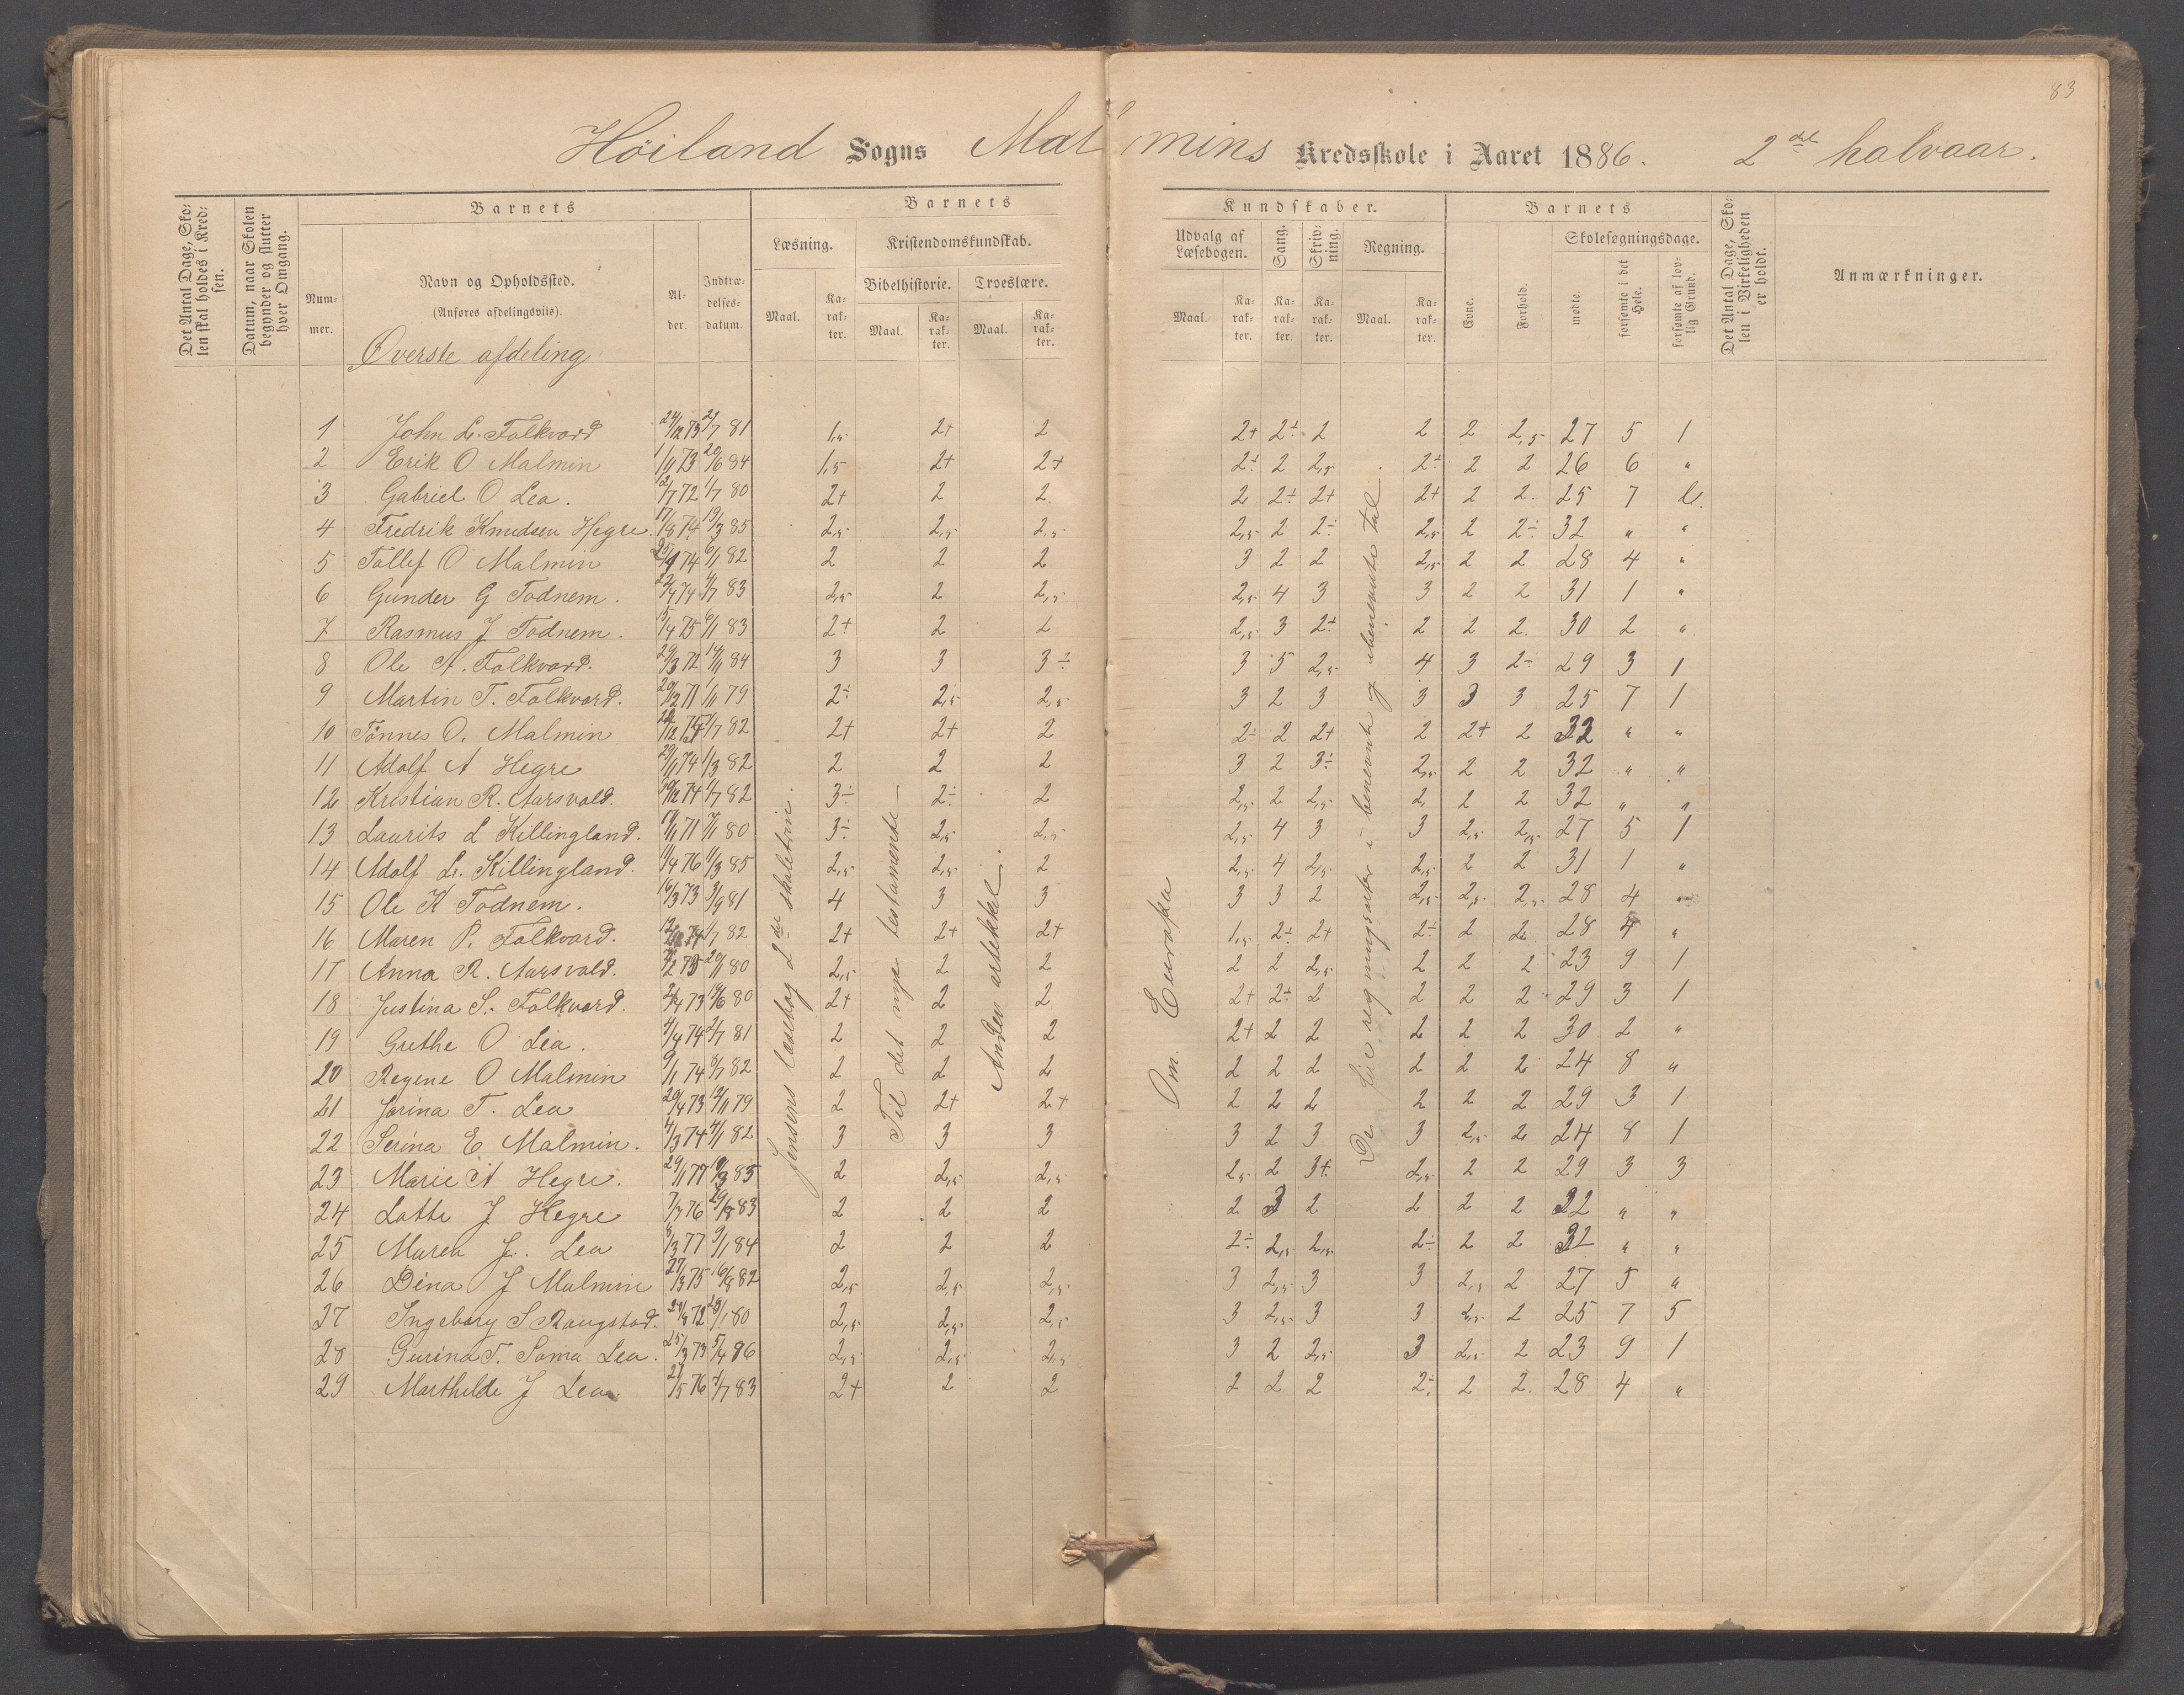 83
Høiland Sogns Malmins Kredsskole i Aaret 1886. 2det halvaar.
Det Antal Dage, Skolen skal holdes i Kredsen.
Datum, naar Skolen begynder og slutter hver Omgang.
Barnets
Nummer.
Navn og Opholdssted.
(Anføres afdelingsviis).
Alder.
Indtrædelsesdatum.
Barnets
Læsning.
Maal.
Karakter.
Kristendomskundskab.
Bibelhistorie.
Maal.
Karakter.
Troeslære.
Maal.
Karakter.
Kundskaber.
Udvalg af Læsebogen.
Maal.
Karakter.
Sang.
Karakter.
Skrivning.
Karakter.
Regning.
Maal.
Karakter.
Barnets
Evne.
Forhold.
Skolesøgningsdage.
mødte.
forsømte i det Hele.
forsømte af lovlig Grund.
Det Antal Dage, Skolen i Virkeligheden er holdt.
Anmærkninger.
Øverste afdeling
1 John L. Folkvord 24/12 73 2/7 81 1,5 2+ 2 2+ 2÷ 2 2 2 2,5 27 5 1
2 Erik O Malmin 1/11 73 20/6 84 1,5 2+ 2+ 2÷ 2 2,5 2÷ 2 2 26 6 "
3 Gabriel O Lea. 12/7 72 1/7 80 2+ 2 2 2 2÷ 2+ 2+ 2 2 25 7
4 Fredrik Knudsen Hegre. 17/8 74 19/3 85 2,5 2,5 2,5 2,5 2 2÷ 2,5 2 2÷ 32 " "
5 Tollef O Malmin 74 6/1 82 2 2 2 3 2 2 2,5 2 2 28 4 "
6 Gunder G Todnem. 74 4/7 83 2,5 2 2,5 2,5 4 3 3 2 2 31 1 "
7 Rasmus J Todnem. 15/4 75 6/1 83 2+ 2 2 2,5 3 2÷ 2 2 2 30 2 "
8 Ole A. Folkvord. 29/3 72 14/1 84 3 3 3÷ 3 5 2,5 4 3 2÷ 29 3 1
9 Martin T. Folkvord. 71 1/11 79 2÷ 2,5 2,5 3 2 3 3 3 3 25 7 1
10 Tönnes O. Malmin 82 2+ 2+ 2 2÷ 2 2+ 2 2+ 2 32 " "
11 Adolf A Hegre 29/11 74 1/3 82 2 2 2 3 2 3÷ 2,5 2 2 32 " "
12 Kristian R. Aarsvold. 74 1/7 82 3÷ 2÷ 2 2,5 2 2,5 2 2 2 32 " "
13 Laurits L Killingland. 71 7/1 80 3÷ 2,5 2,5 2,5 4 3 3 2,5 2,5 27 5 1
14 Adolf L. Killingland. 76 1/3 85 2,5 2,5 2 2,5 4 2,5 2,5 2 2 31 1 "
15 Ole K Todnem. 16/3 73 3/9 81 4 3 3 3 3 2 2,5 2,5 2,5 28 4 "
16 Maren P. Folkvord. 74 1/7 82 2+ 2+ 2+ 1,5 2÷ 2+ 2÷ 2 2 28 4 "
17 Anna R. Aarsvold. 73 20/11 80 2,5 2 2 2 2 2,5 2 2 2 23 9 1
18 Justina S. Folkvord. 73 80 2+ 2 2 2+ 2÷ 2 2 2 2 29 3 1
19 Grethe O Lea. 4/4 74 2/7 81 2 2 2 2+ 2 2 2 2 2 30 2 "
20 Regene O Malmin 9/1 74 6/7 82 2 2 2 2 2 2 2 2 2 24 8 "
21 Jorina T. Lea 20/4 73 12/11 79 2 2+ 2+ 2 2 2 2 2 2 29 3 1
22 Serina E. Malmin. 4/3 74 4/1 82 3 3 3 3 2 3 3 2,5 2 24 8 1
23 Marie A Hegre. 29/1 77 19/3 85 2 2,5 2,5 2,5 2 3+ 2,5 2 2 29 3 3
24 Lotte J Hegre 7/7 76 83 2 2 2 2 3 2 2 2 2 32 " "
25 Maren J. Lea 8/3 77 9/1 84 2 2 2 2÷ 2,5 2,5 2÷ 2 2 32 " "
26 Dina J Malmin 27/3 75 16/8 82 2,5 2,5 2,5 3 2,5 3 3 2,5 2 27 5 "
27 Ingeborg S Raugstad. 72 80 2,5 2,5 2,5 3 2,5 3 3 2,5 2 25 7 5
28 Gurina T. Soma Lea. 25/3 73 5/4 86 2,5 2,5 2,5 3 2 2,5 3 2,5 2 23 9 1
29 Marthilde J Lea 21/5 76 2/7 83 2+ 2 2 2 2 2 2÷ 2 2 28 4 "
Jensens læsebog 2det skoletrin.
Til det nye testamente
Anden artekkel.
Om Europa
De fire regningsarter i benevnte og ubenevnte tal